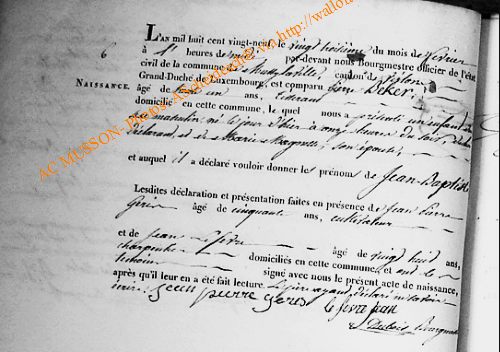 6
Naissance.
L'an mil huit cent vingt-neuf le vingt huitième du mois de février
à heures de par-devant nous Bourgmestre Officier de l'état
civil de la commune de Mussy la ville, canton de
Grand-Duché de Luxembourg, est comparu Pierre Deker,
âgé de ans,
domicilié en cette commune, le quel nous a présenté un enfant du
sexe masculin, né le jour d'hier à onze heures du soir, de lui
déclarant, et de Marie Magnette, son épouse,
et auquel il a déclaré vouloir donner les prénoms de Jean-Baptiste
Lesdites déclaration et présentation faites en présence de Jean Pierre
âgé de cinquante ans, cultivateur
et de Jean âgé de vingt huit ans,
charpentier domiciliés en cette commune, et ont les
témoins signé avec nous le présent acte de naissance,
après qu'il leur en a été fait lecture. Le père ayant déclaré ne savoir
écrire. jean pierre
le jean
Bourgmestre
AC MUSSON-Pierre-Architecture.be via http://wallon